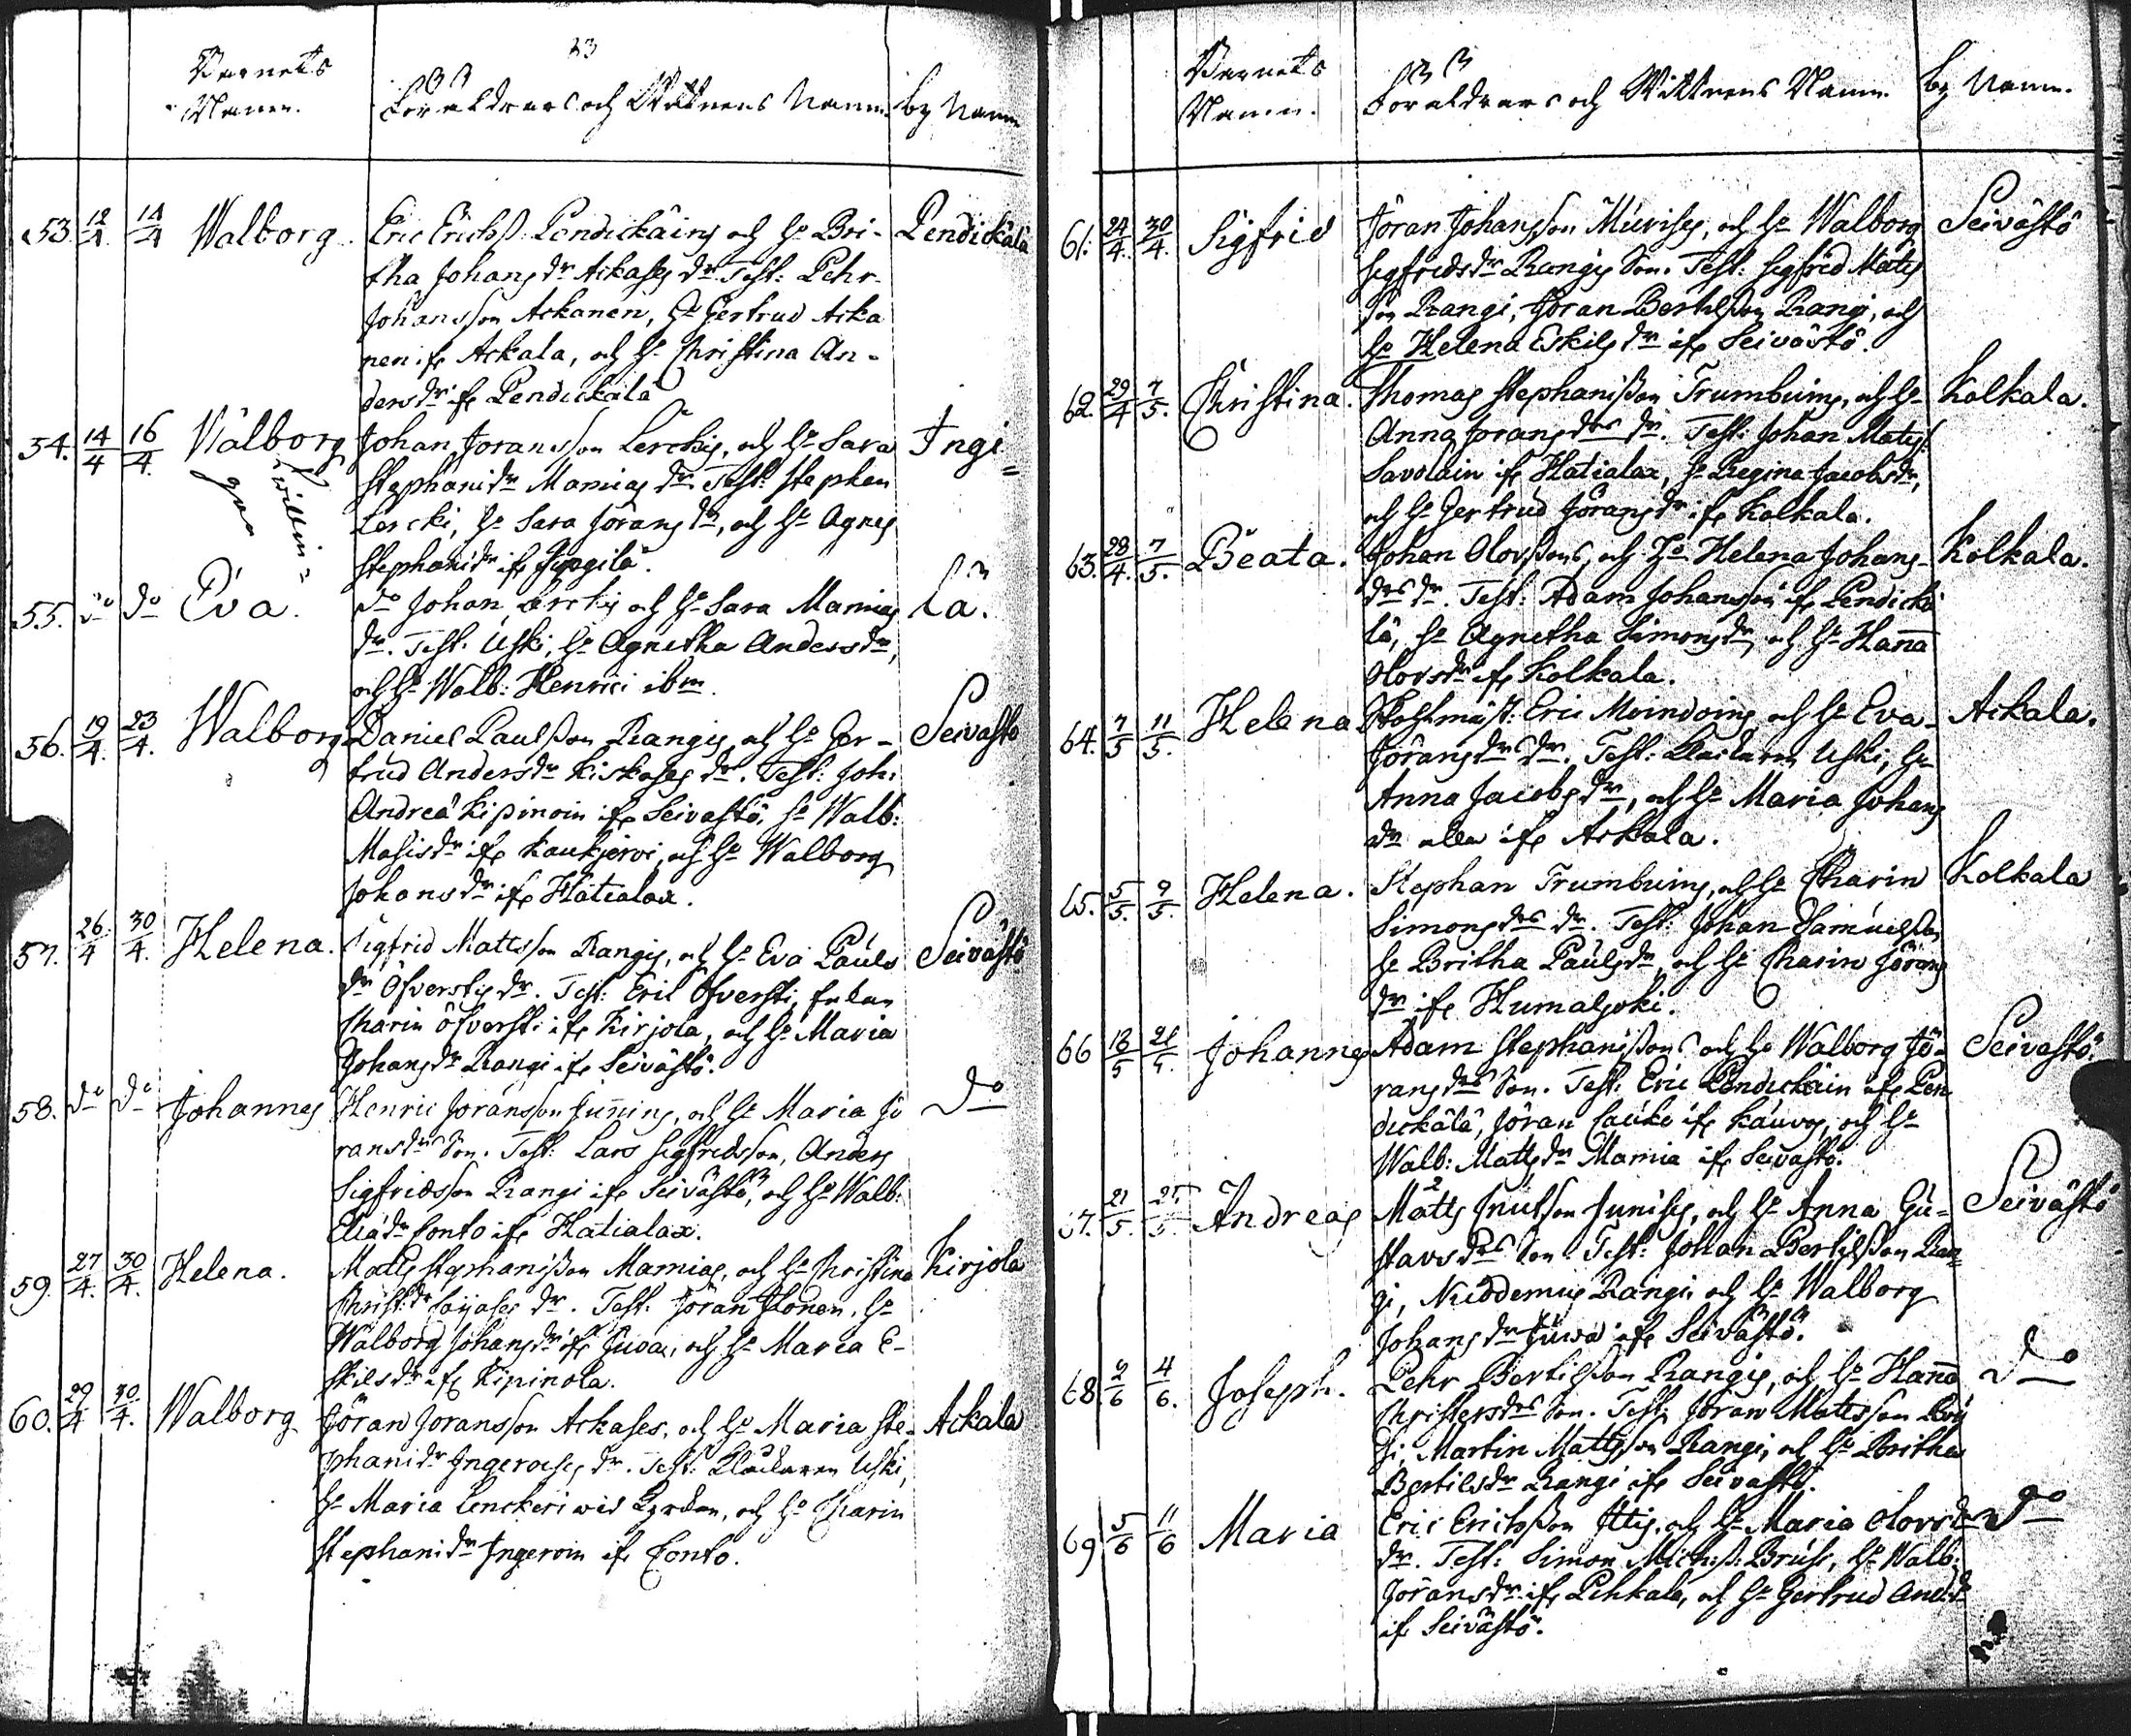 Barnets
Namn.
Föräldrars och Wittnens Namn. by Namn
53. 12/4 14/4 Walborg. Eric Erichsß Pendickäing och Hu Bri- Pendickälä
tha Johansdr Ackases dr. Test: Pehr
Johansson Ackanen, Hu Gertrud Acka
nen ifr Ackala, och Hu Christina An-
dersdr ifr Pendickälä
54. 14/4 16/4 Wálborg Johan Joransson Lerckis, och Hu Sara Ingi=
Stephanidr Mamias dr. Test: Stephan
Lercki, Hu Sara Jöransdr, och Hu Agnes
Stephanidr ifr
twillin=
gar
55. do do Eva. do Johan Lerckis och Hu Sara Mamias lä.
dr. Test: Uski, Hu Agnetha Andersdr,
och Hu Walb: Henrici ibm.
56. 19/4 23/4. Walborg Daniel Paulsßon Rangis, och Hu Ger- Seivästö
trud Andersdr Kiskases dr. Test: Joh:
Andreä Kipinoin ifr Seivästö, Hu Walb:
Matisdr ifr Kaukjervi, och Hu Walborg
Johansdr ifr Hatialax.
57. 26/4 30/4. Helena. Sigfrid Mattsson Rangis, och Hu Eva Pauls Seivästö
dr Öfverstis dr. Test: Eric Öfversti,
Charin Öfversti ifr Kirjola, och Hu Maria
Johansdr Rangi ifr Seivästö.
58. do do Johannes Henric Joransson Junnins, och Hu Maria Jö do
ransdrs Son. Test: Lars Sigfridsson, Anders
Sigfridsson Rangi ifr Seivästö, och Hu Walb:
Eliädr Conto ifr Hatialax.
59. 27/4. 30/4. Helena. Matts Stephanißon Mamias, och Hu Christina Kirjola
Christ:dr dr. Test: Jöran Ilonen, Hu
Walborg Johansdr ifr Juva, och Hu Maria E-
skilsdr ifr Kipinola.
60. 29/4 30/4. Walborg Jöran Joransson Ackases, och Hu Maria Ste- Ackala
phanidr Ingeroises dr. Test: Klåckaren Uski,
Hu Maria Lenckeri wid Kyrkan, och Hu Charin
Stephanidr Ingeroin ifr Conto.
Barnets
Namn.
Föräldrars och Wittnens Namn. by Namn.
61. 24/4. 30/4. Sigfrid Jöran Johansson Muvises, och Hu Walborg Seivästö
Sigfridsdr Rangis Son. Test: Sigfrid Mats
son Rangi, Jöran Bertilsson Rangi, och
Hu Helena Eskilsdr ifr Seivästö.
62. 29/4 7/5. Christina. Thomas Stephanißon Trumbuins, och Hu Kolkala.
Anna Joransdrs dr. Test: Johan Matsß:
Savolain ifr Hatialax, Hu Regina Jacobsdr,
och Hu Gertrud Jöransdr ifr Kolkala.
63. 28/4. 7/5. Beata. Johan Olovßons, och Hu Helena Johans- Kolkala.
drs dr. Test: Adam Johansson ifr Pendickä
lä, Hu Agnetha Simonsdr, och Hu Hanna
Olovsdr ifr Kolkala.
64. 7/5 11/5. Helena Eric Moindoins och Hu Eva Ackala.
Jöransdrs dr. Test: Klåckaren Uski, Hu
Anna Jacobsdr, och Hu Maria Johans
dr alla ifr Ackala.
65. 5/5. 9/5. Helena. Stephan Trumbuins, och Hu Charin Kolkala
Simonsdrs dr. Test: Johan Samuelsßon
Hu Britha Paulsdr, och Hu Charin Jörans
dr ifr Humaljoki.
66 18/5 21/5. Johannes Adam Stephanißons och Hu Walborg Jö- Seivästö.
ransdrs Son. Test: Eric Pendickäin ifr Pen
dickälä, Jöran ifr Kauvos, och Hu
Walb: Mattsdr Mamia ifr Seivästö.
67. 21/5. 25/5. Andreas Matts Junises, och Hu Anna Gu- Seivästö
stavsdrs Son. Test: Johan Bertilßon Ran-
gi, Nicodemus Rangi, och Hu Walborg
Johansdr Juwa ifr Seivästö.
68. 2/6 4/6. Joseph. Pehr Bertilßon Rangis, och Hu Hanna do
Christersdrs Son. Test: Jöran Matsson
Martin Mattsson Rangi, och Hu Britha
Bertilsdr Rangi ifr Seivästö.
69 5/6 11/6 Maria Eric Erichsßon och Hu Maria Olovsdrs do
dr. Test: Simon Mich:ß: Hu Walb:
Jöransdr ifr Pihkala, och Hu Gertrud And:dr
if Seivästö.